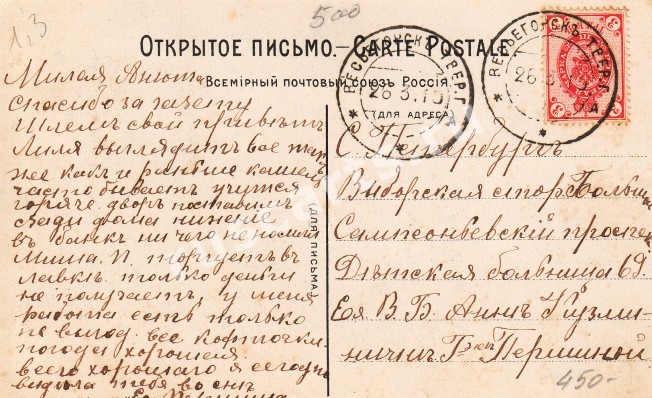 1,3
500
ОТКРЫТОЕ ПИСЬМО.—CARTE POSTALE.
ВСЕМІРНЫЙ ПОЧТОВЫЙ СОЮЗЪ РОССІЯ.
(ДЛЯ АДРЕСА)
(ДЛЯ ПИСЬМА)
ВЕСЬЕГОНСКЪ ТВЕРГ.
26 3
ВЕСЬЕГОНСКЪ ТВЕРГ.
26 3
Милая Анюта
спасибо за газету
Шлемъ свой привѣтъ
Лиля выглядитъ все так
же какъ и раньше кашель
часто бываетъ учится
горяче. дворъ поставимъ
сзади дома
въ банкъ ничего не носили
Миша П. торгуетъ въ
лавкѣ только деньги
не получаетъ у меня
работа есть только
не выгод. все
погода хорошая.
всего хорошаго я сегодня
видѣла тебя во снѣ
С. Петербургъ
Выборская стор. Больше
Сампсоньевскій проспек
Дѣтская больница 69.
Ея В. Б. Аннѣ Кузми-
ничнѣ Першиной
450-